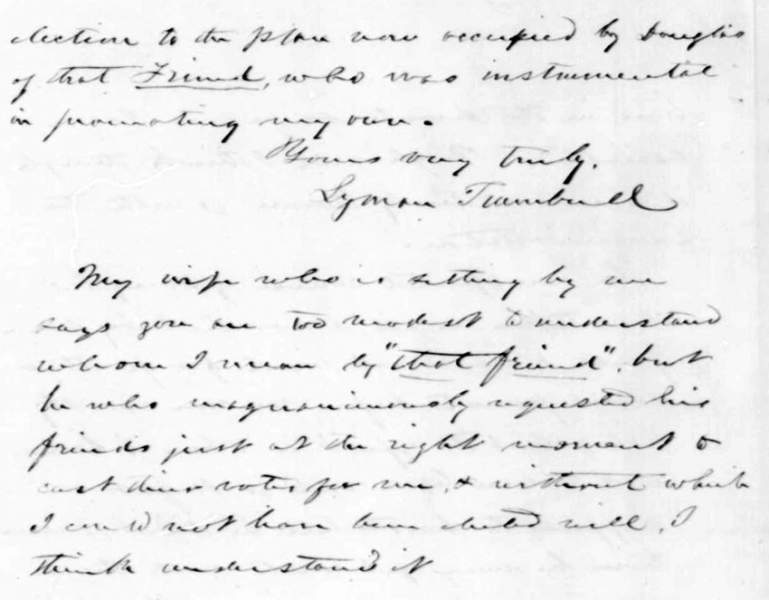 election to the place now occupied by Douglas
of that Friend, who was instrumental
in promoting my own.
Yours very truly,
Lyman Trumbull
My wife who is setting by me
says you are too modest to understand
whom I mean by "that friend", but
he who magnanimously requested his
friends just at the right moment to
cast their votes for me, & without which
I could not have been elected will, I
think understand it